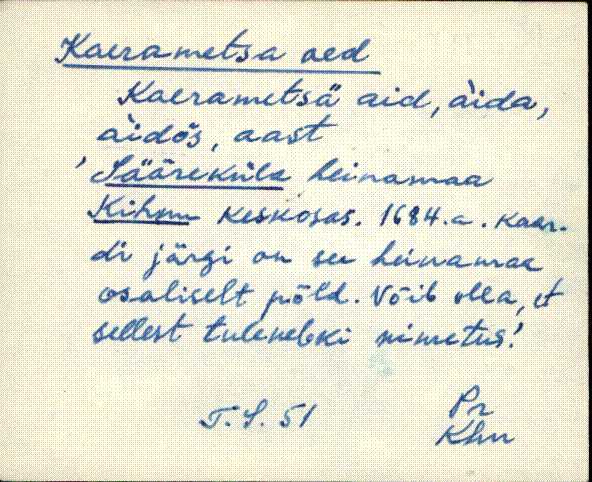 Kaerametsa aed
Kaerametsä aid, àida,
àidõs, aast
'Sääreküla heinamaa
Kihnu keskosas. 1684.a. kaar-
di järgi on see heinamaa
osaliselt põld. Võib olla, et
sellest tulenebki nimetus!
T.S. 51
Pr
Khn